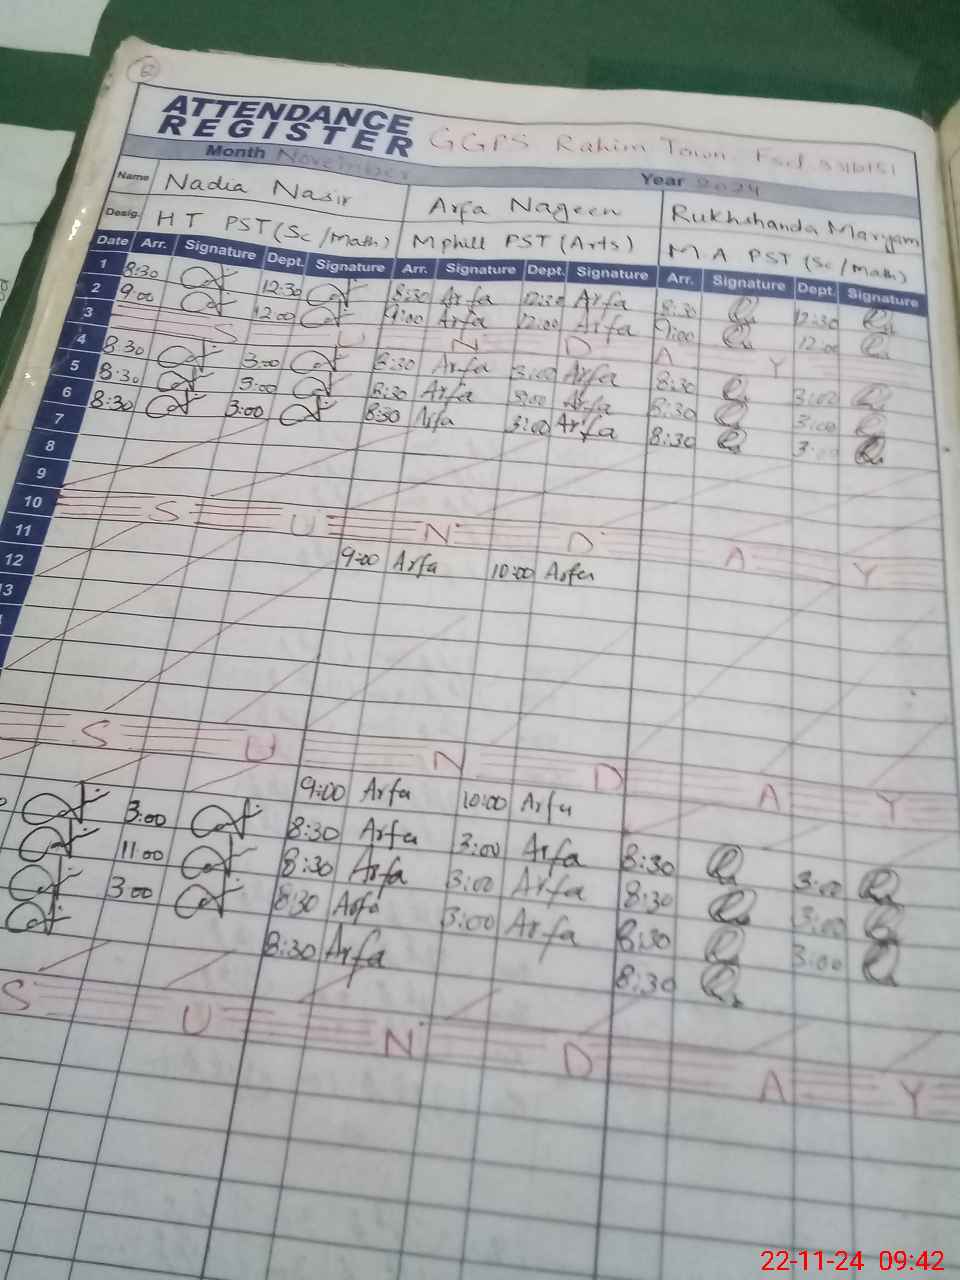 ATTENDANCE
REGISTER GGPS Rahim Town
Month November Year 2024
Name Nadia Nasir Arfa Nageen Rukhshanda Maryam
Desig. HT PST (Sc/Math) Mphill PST (Arts) M.A PST (Sc/Math)
Date Arr. Signature Dept. Signature Arr. Signature Dept. Signature Arr. Signature Dept. Signature
1 8:30 12:30 8:30 Arfa 12:30 Arfa 8:30 12:30
2 9:00 12:00 9:00 Arfa 12:00 Arfa 9:00 12:00
3 S U N D A Y
4 8:30 3:00 8:30 Arfa 3:00 Arfa 8:30 3:00
5 8:30 3:00 8:30 Arfa 3:00 Arfa 8:30 3:00
6 8:30 3:00 8:30 Arfa 3:00 Arfa 8:30 3:00
7
8
9
10 S U N D A Y
11 9:00 Arfa 10:00 Arfa
12
13
S U N D A Y
9:00 Arfa 10:00 Arfa
3:00 8:30 Arfa 3:00 Arfa 8:30 3:00
11:00 8:30 Arfa 3:00 Arfa 8:30 3:00
3:00 8:30 Arfa 3:00 Arfa 8:30 3:00
8:30 Arfa 8:30
S U N D A Y
22-11-24 09:42